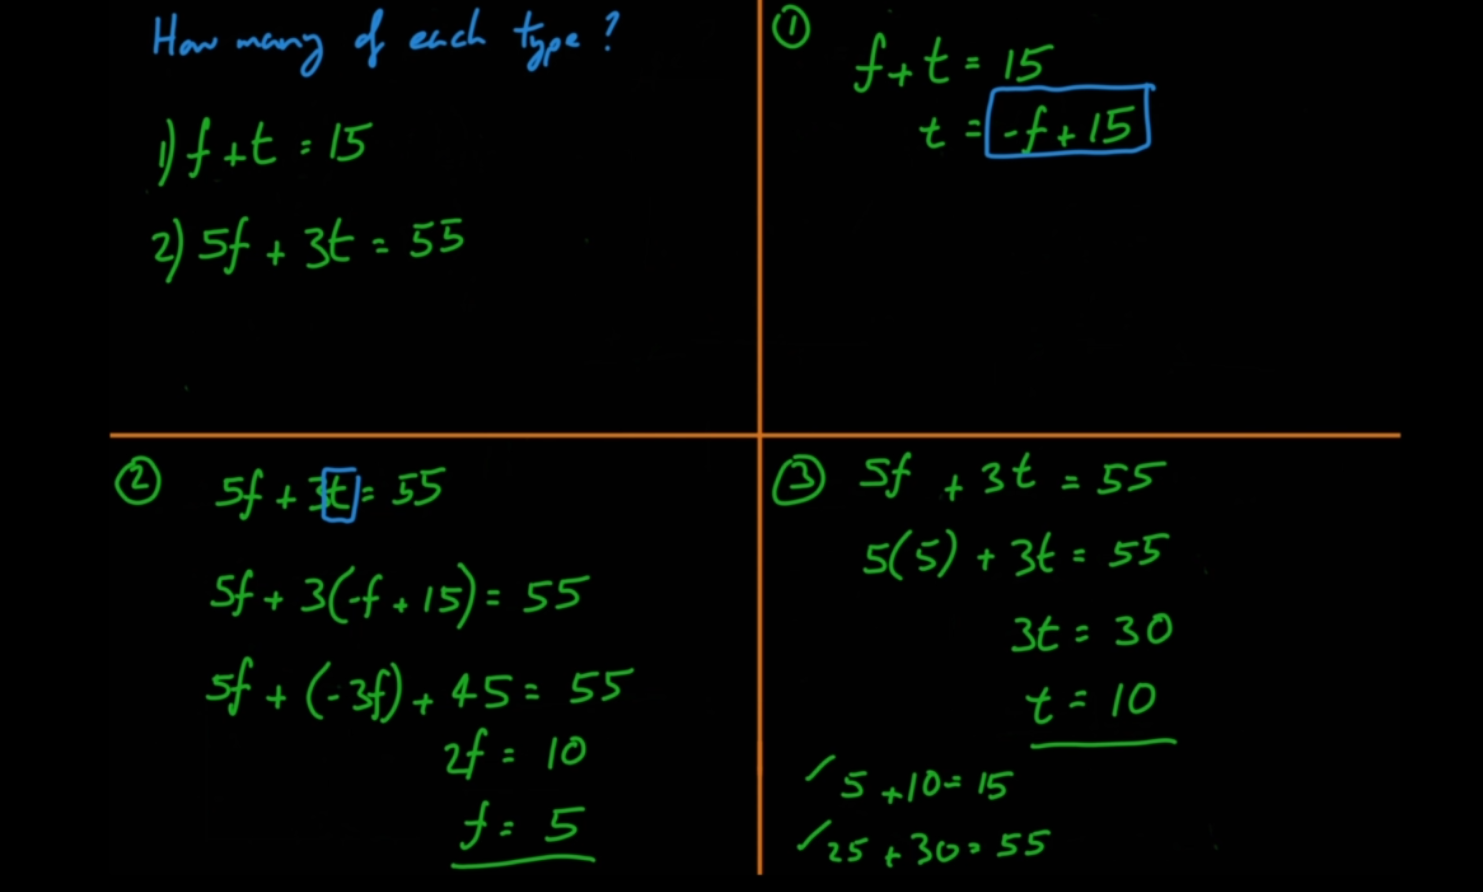 How many of each type ?
1) f + t = 15
2) 5f + 3t = 55
①
f + t = 15
t = -f + 15
②
5f + 3t = 55
5f + 3(-f + 15) = 55
5f + (-3f) + 45 = 55
2f = 10
f = 5
③
5f + 3t = 55
5(5) + 3t = 55
3t = 30
t = 10
✓ 5 + 10 = 15
✓ 25 + 30 = 55